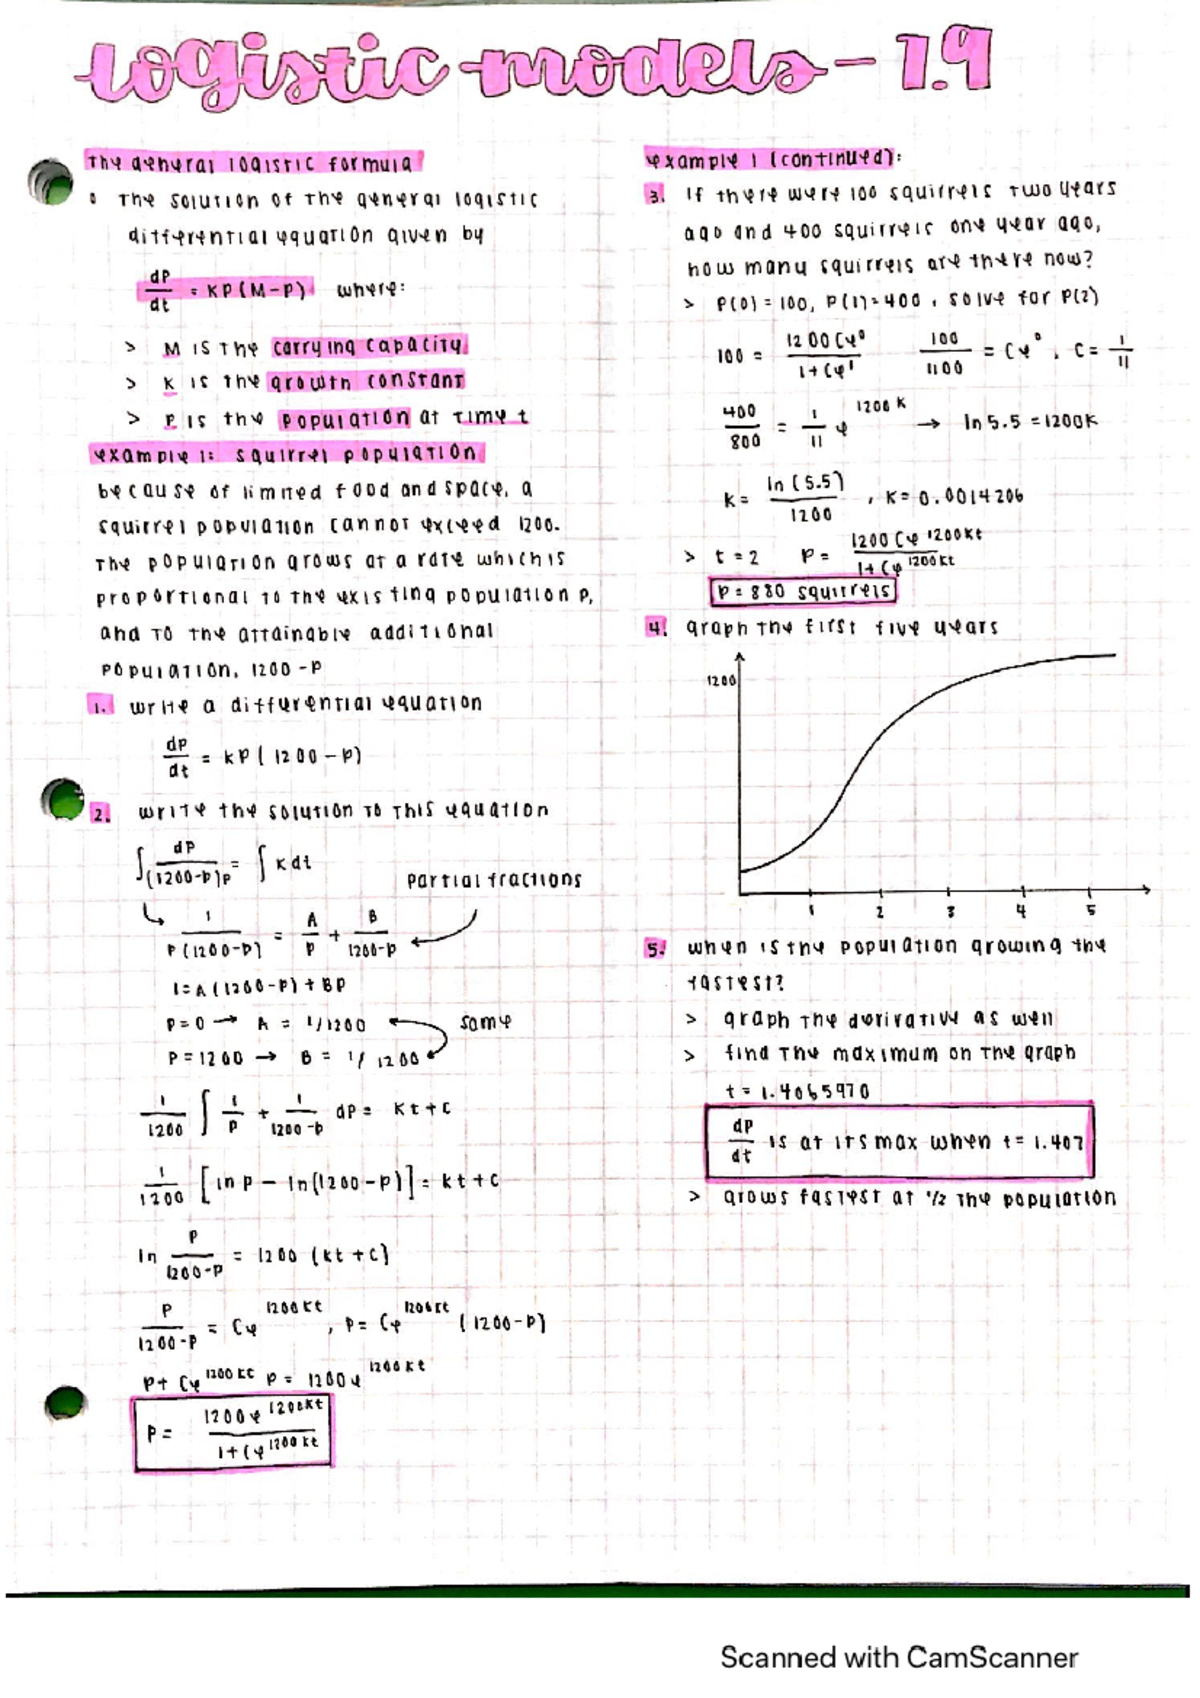 logistic models - 7.9
the general logistic formula
The solution of the general logistic
differential equation given by
dP/dt = KP(M-P) where:
> M is the carrying capacity
> K is the growth constant
> P is the population at time t
example 1: squirrel population
because of limited food and space, a
squirrel population cannot exceed 1200.
The population grows at a rate which is
proportional to the existing population P,
and to the attainable additional
population, 1200-P
1. write a differential equation
dP/dt = KP(1200-P)
2. write the solution to this equation
∫ dP/(1200-P)P = ∫ K dt
partial fractions
1/P(1200-P) = A/P + B/1200-P
1 = A(1200-P) + BP
P=0 → A = 1/1200 same
P=1200 → B = 1/1200
1/1200 ∫ 1/P + 1/1200-P dP = Kt+C
1/1200 [ln P - ln(1200-P)] = Kt+C
ln P/1200-P = 1200 (Kt+C)
P/1200-P = Ce^1200Kt, P = Ce^1200Kt (1200-P)
P + Ce^1200Kt P = 1200e^1200Kt
P = 1200e^1200Kt / 1+Ce^1200Kt
example 1 (continued):
3. If there were 100 squirrels two years
ago and 400 squirrels one year ago,
how many squirrels are there now?
> P(0)=100, P(1)=400, solve for P(2)
100 = 1200Ce^0 / 1+Ce^1 100/1100 = Ce^0, C = 1/11
400/800 = 1/11 e^1200K → ln 5.5 = 1200K
K = ln(5.5)/1200, K = 0.0014206
> t=2 P = 1200Ce^1200Kt / 1+Ce^1200Kt
P = 880 squirrels
4. graph the first five years
1200
1 2 3 4 5
5. when is the population growing the
fastest?
> graph the derivative as well
> find the maximum on the graph
t = 1.4065970
dP/dt is at its max when t = 1.407
> grows fastest at 1/2 the population
Scanned with CamScanner